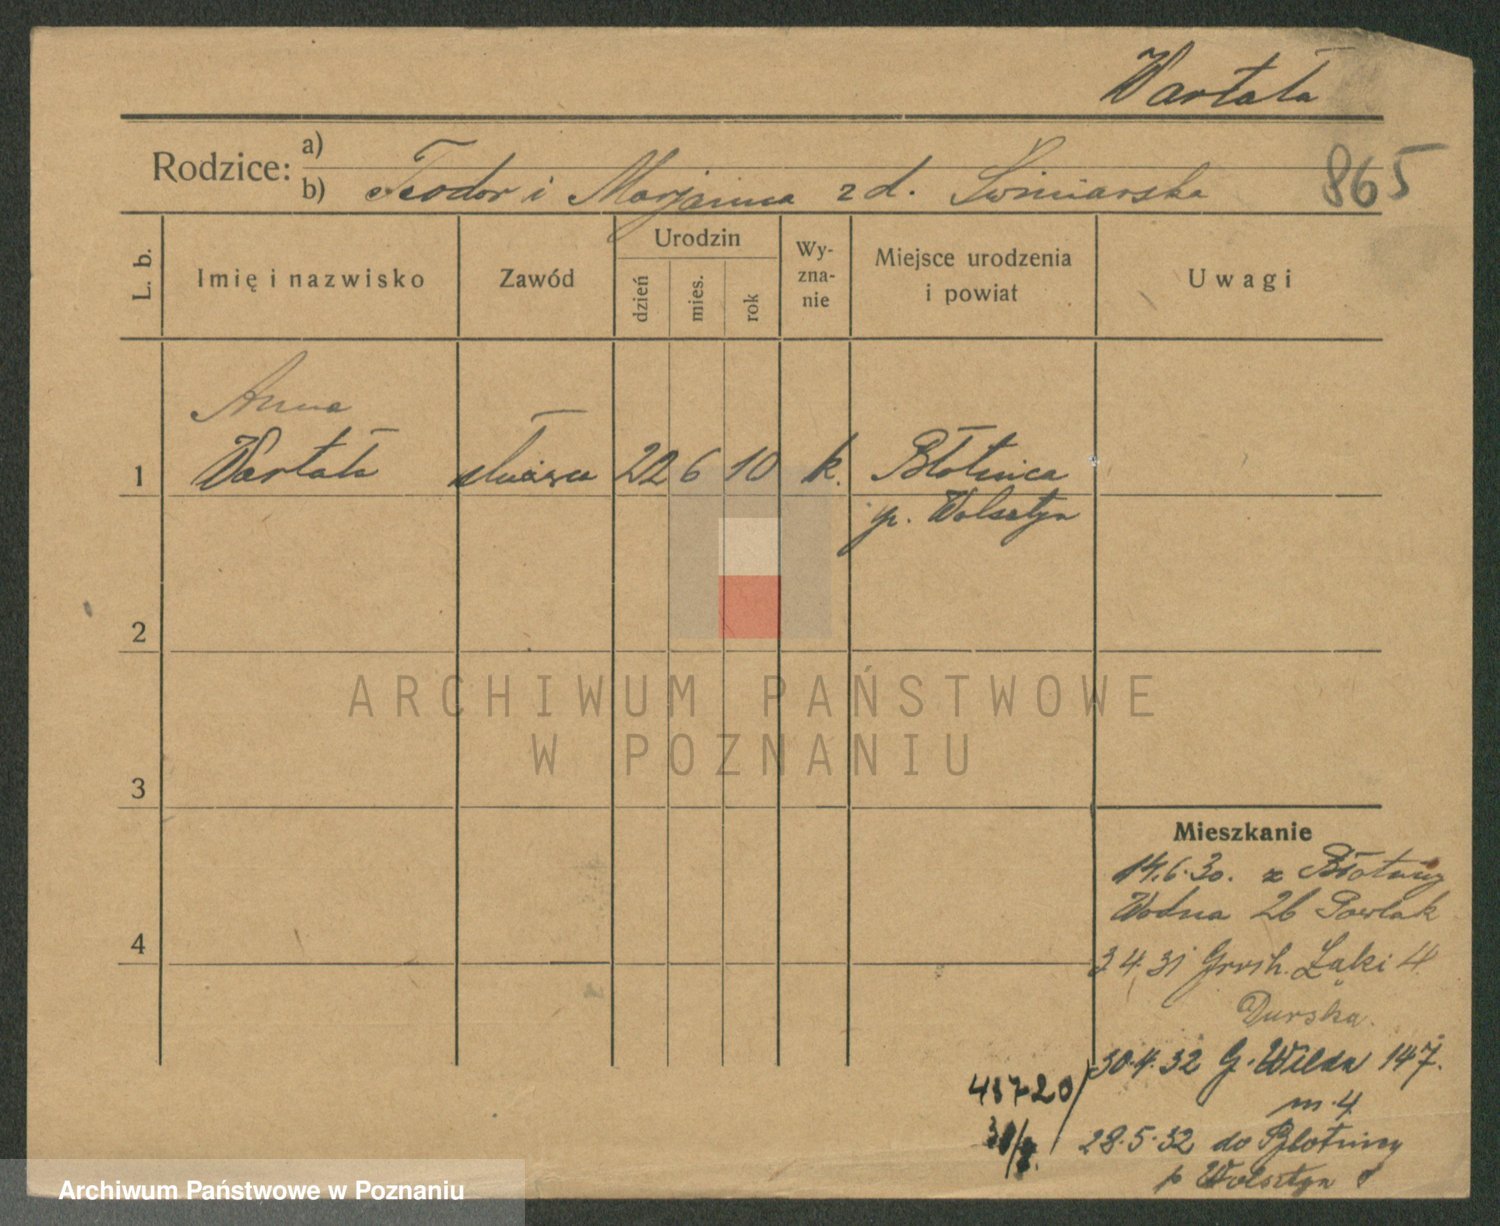 Wartała
Rodzice: a)
b) Teodor i Marjanna zd. Świniarska
865
L. b.
Imię i nazwisko
Zawód
Urodzin
dzień
mies.
rok
Wy-
zna-
nie
Miejsce urodzenia
i powiat
Uwagi
Anna
1 Wartała służąca 22 6 10 k. Błotnica
p. Wolsztyn
2
ARCHIWUM PAŃSTWOWE
W POZNANIU
3
Mieszkanie
14.6.30. z Błotnicy
Wodna 26 Pawlak
4
3.4.31 Łąki 4
Durska.
30.4.32 G. Wilda 147.
m. 4
28.5.32 do Błotnicy
p Wolsztyn
Archiwum Państwowe w Poznaniu